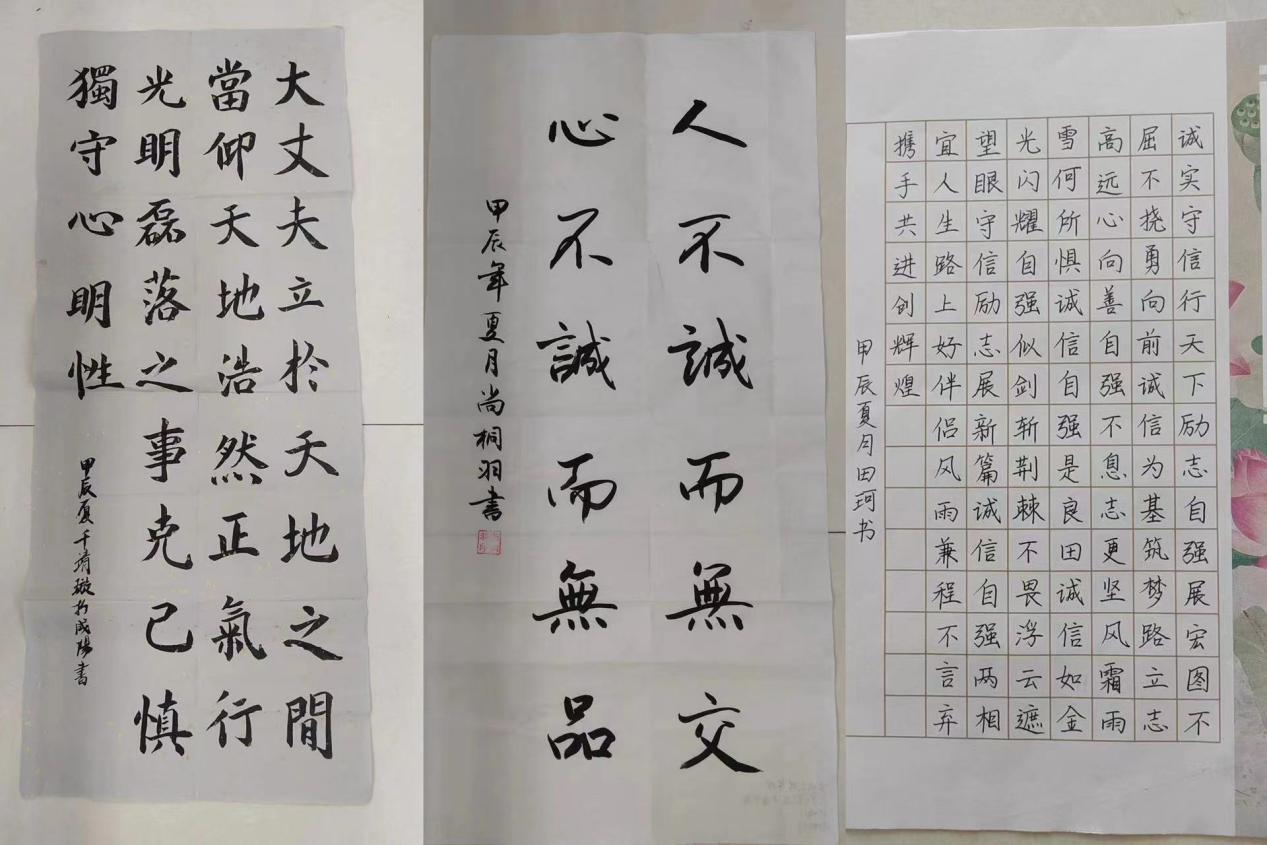 大丈夫立於天地之間
當仰天地浩然正氣行
光明磊落之事克己慎
獨守心明性
甲辰夏于淯璇於咸陽書
人不誠而無交
心不誠而無品
甲辰年夏月尚桐羽書
诚实守信行天下励志自强展宏图不
屈不挠勇向前诚信为基筑梦路立志
高远心向善自强不息志更坚风霜雨
雪何所惧诚信自强是良田诚信如金
光闪耀自强似剑斩荆棘不畏浮云遮
望眼守信励志展新篇诚信自强两相
宜人生路上好伴侣风雨兼程不言弃
携手共进创辉煌
甲辰夏月田珂书